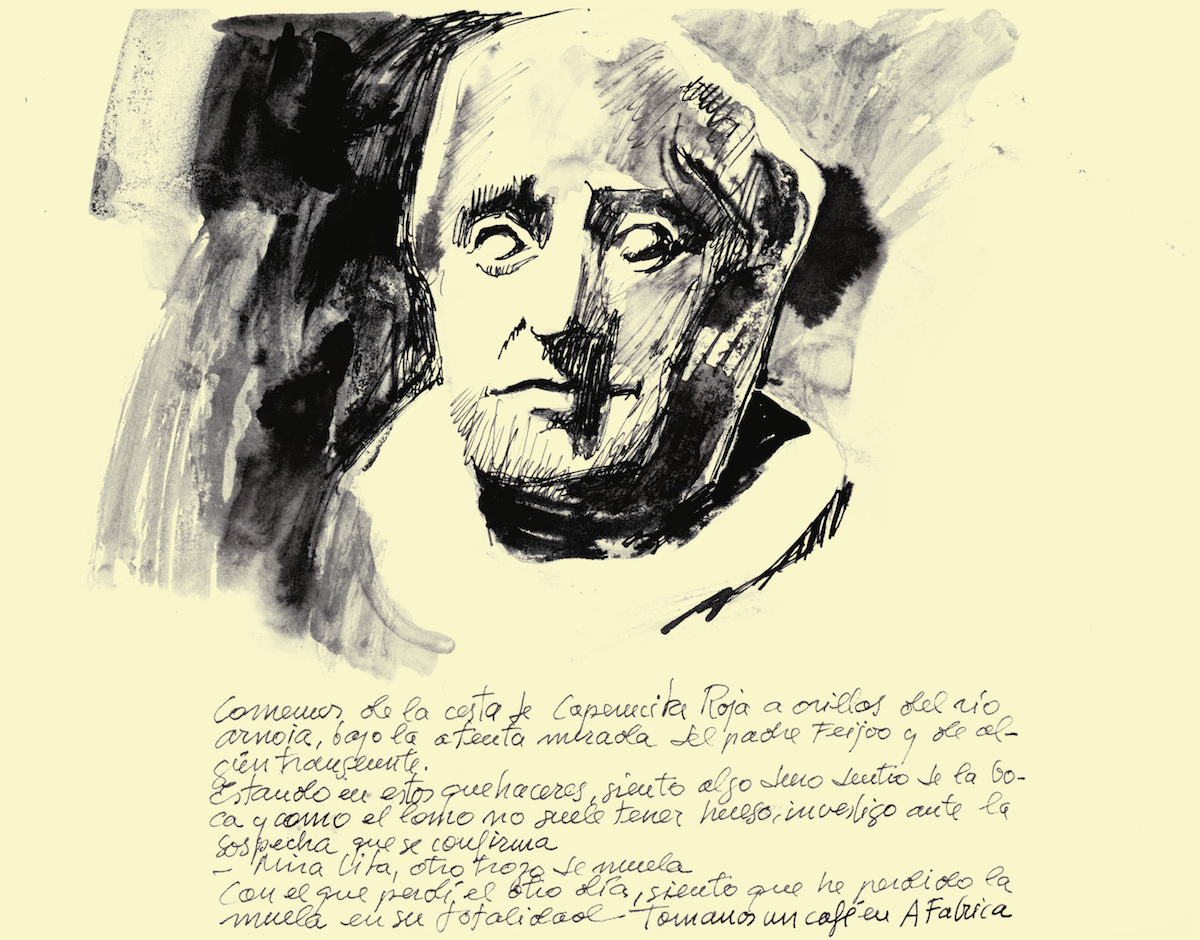 Comemos de la cesta de Caperucita Roja a orillas del río
arnoia, bajo la atenta mirada del padre Feijoo y de al-
gún transeunte.
Estando en estos quehaceres, siento algo duro dentro de la bo-
ca y como el lomo no suele tener hueso, investigo ante la
sospecha que se confirma
- Mira Vita, otro trozo de muela
Con el que perdí el otro día, siento que he perdido la
muela en su totalidad - Tomamos un café en A Fabrica